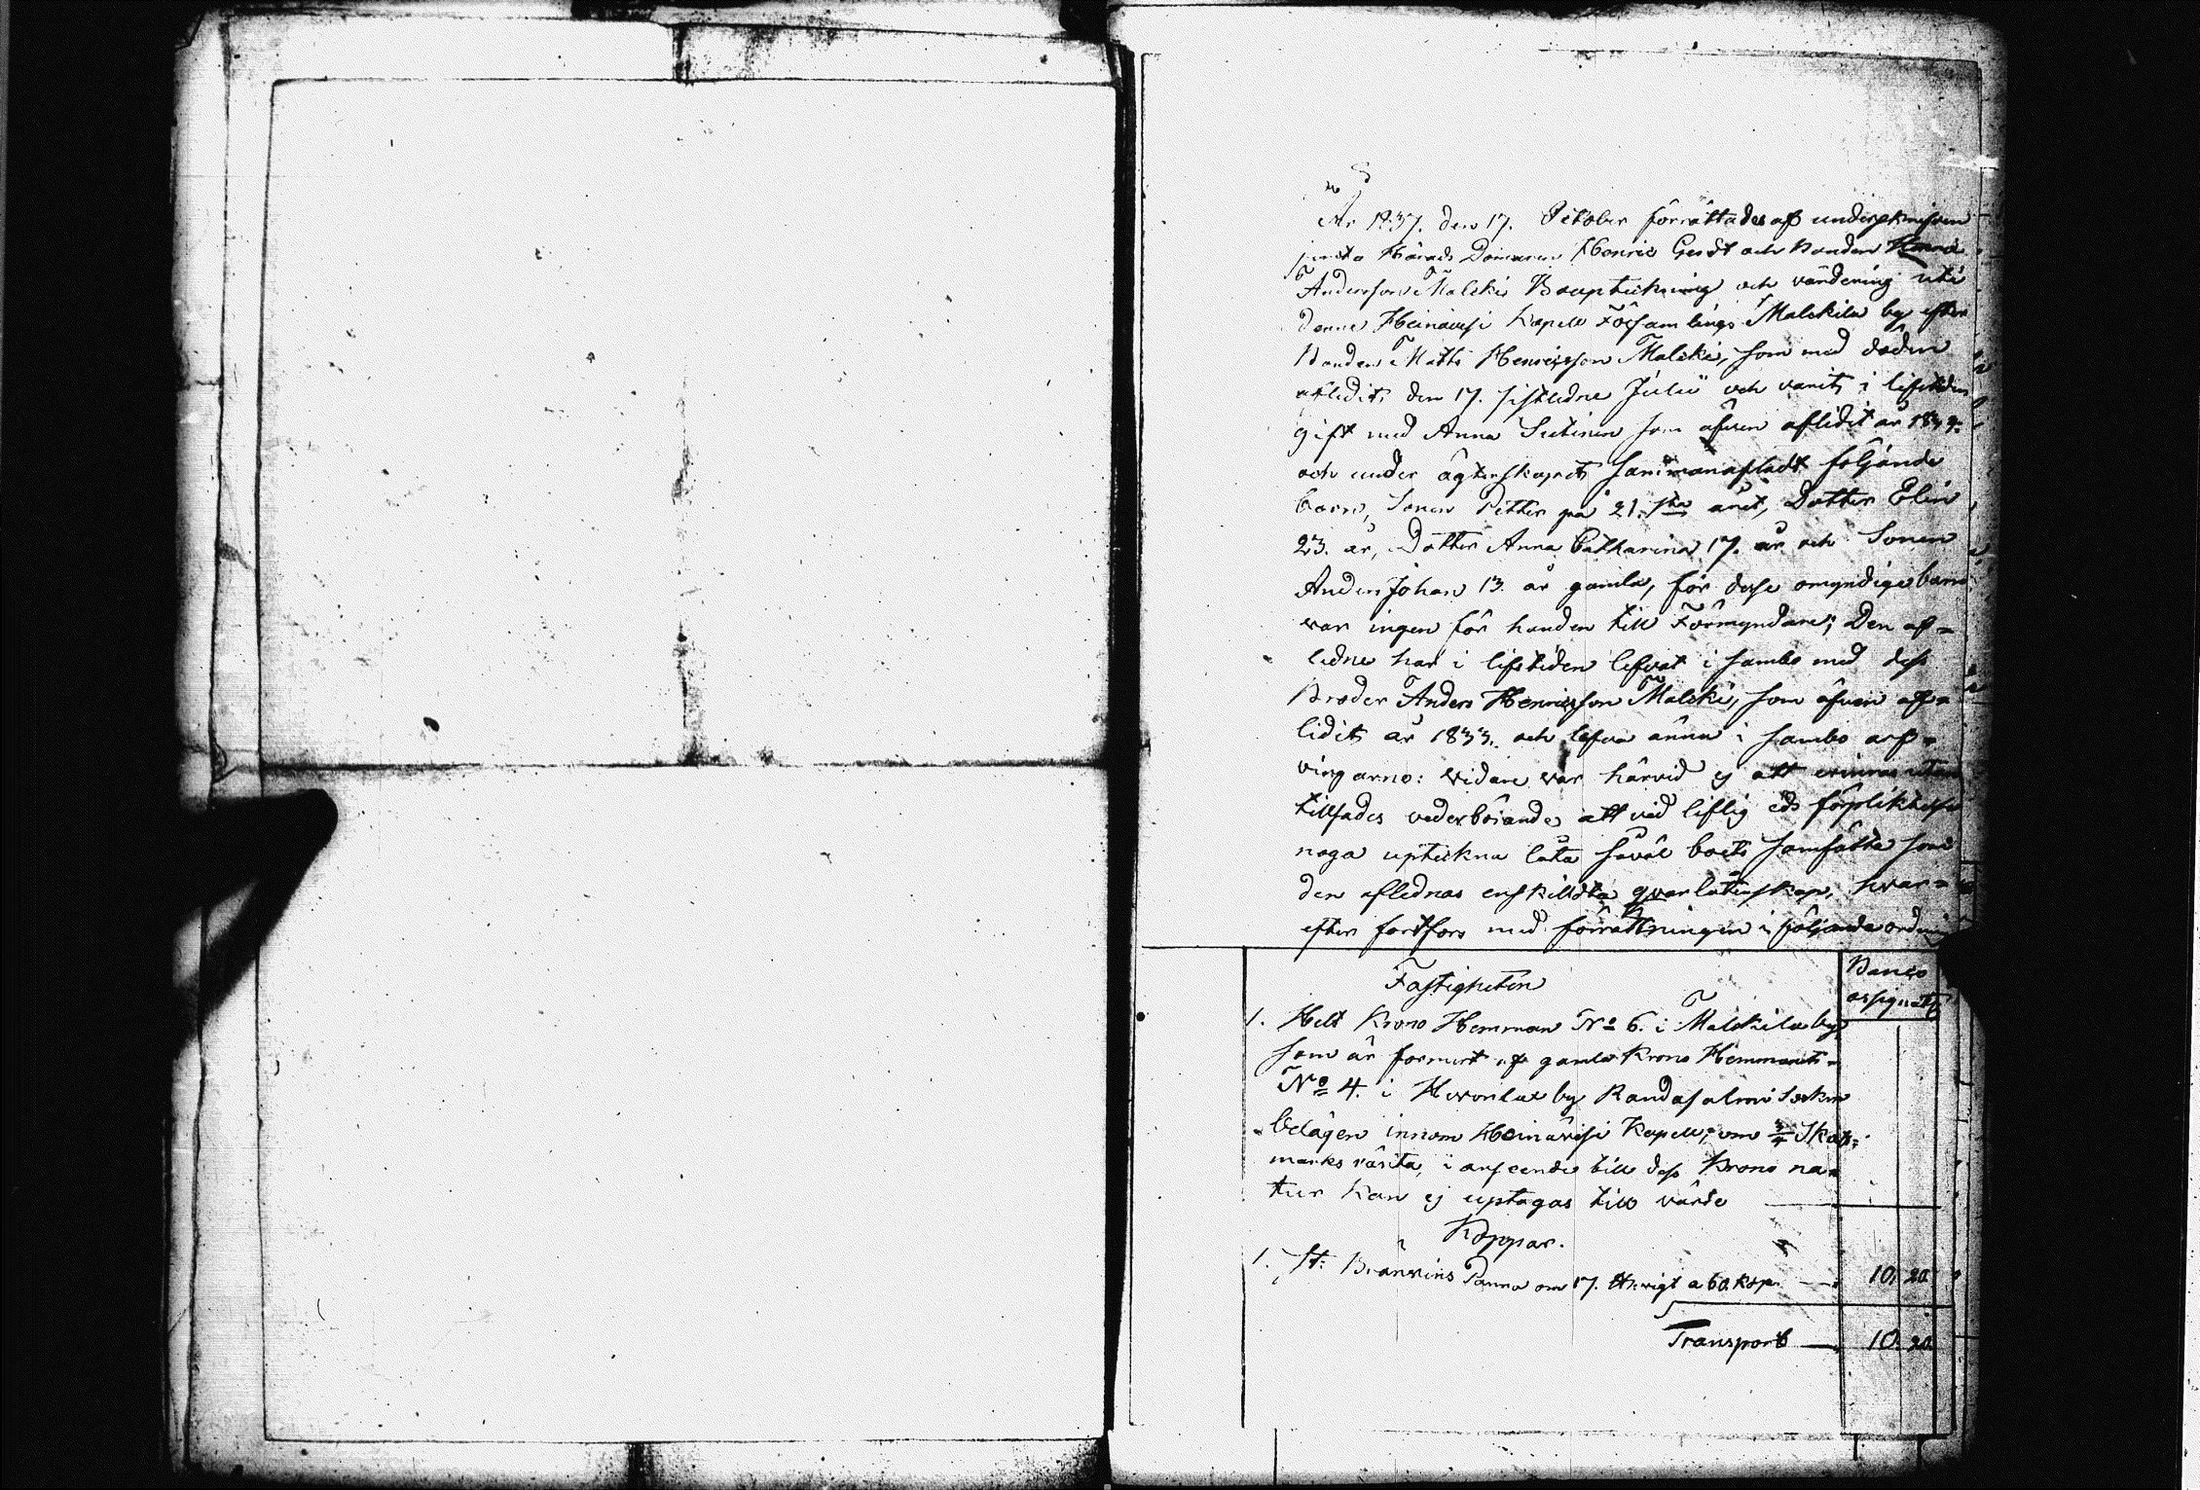 År 1837. den 17. October förrättades af underskrifven
jemte Härads Domaren Henric Gerdt och Bonden
Andersson Malski Bouptekning och värdering uti
denne Heinävesi Kapell Församlings Malskila by efter
Bonden Matts Henricsson Malski, som med döden
aflidit den 17. sistledne Julii och varit i lifstiden
gift med Anna Sutinen som äfven aflidit år
och under ägtenskapet sammanaflat följande
barn, Sonen Petter på 21.sta året, Dotter Elin
23. år, Dotter Anna Catharina 17. år och Sonen
Anders Johan 13. år gamla, för desse omyndige barn
var ingen för handen till Förmyndare; Den af=
ledne har i lifstiden lefvat i sambo med dess
Broder Anders Henricsson Malski, som äfven af=
lidit år 1833. och lefva ännu i sambo arf=
vingarne: vidare var härvid ej att erinras utan
tillsades vederbörande att vid liflig eds förpliktelse
noga uptekna låta såväl boets samfälta som
den aflednas enskildta qvarlåtenskap, hvar=
efter fortfors med förrättningen i följande ordning
Fastigheten
Banco
assignatr
1. Helt Krono Hemman No 6. i Malskila by,
som är formert af gamla Krono Hemmanet
No 4. i Hevonlax by Randasalmi Sockn
belägen innom Heinävesi Kapell, om 3/4 Skatt=
marks ränta, i anseende till dess Krono na=
tur kan ej uptagas till värde
Koppar.
1. st: Bränvins Panna om 17. ℔ vigt a 60. kop. — 10. 20.
Transport — 10. 20.